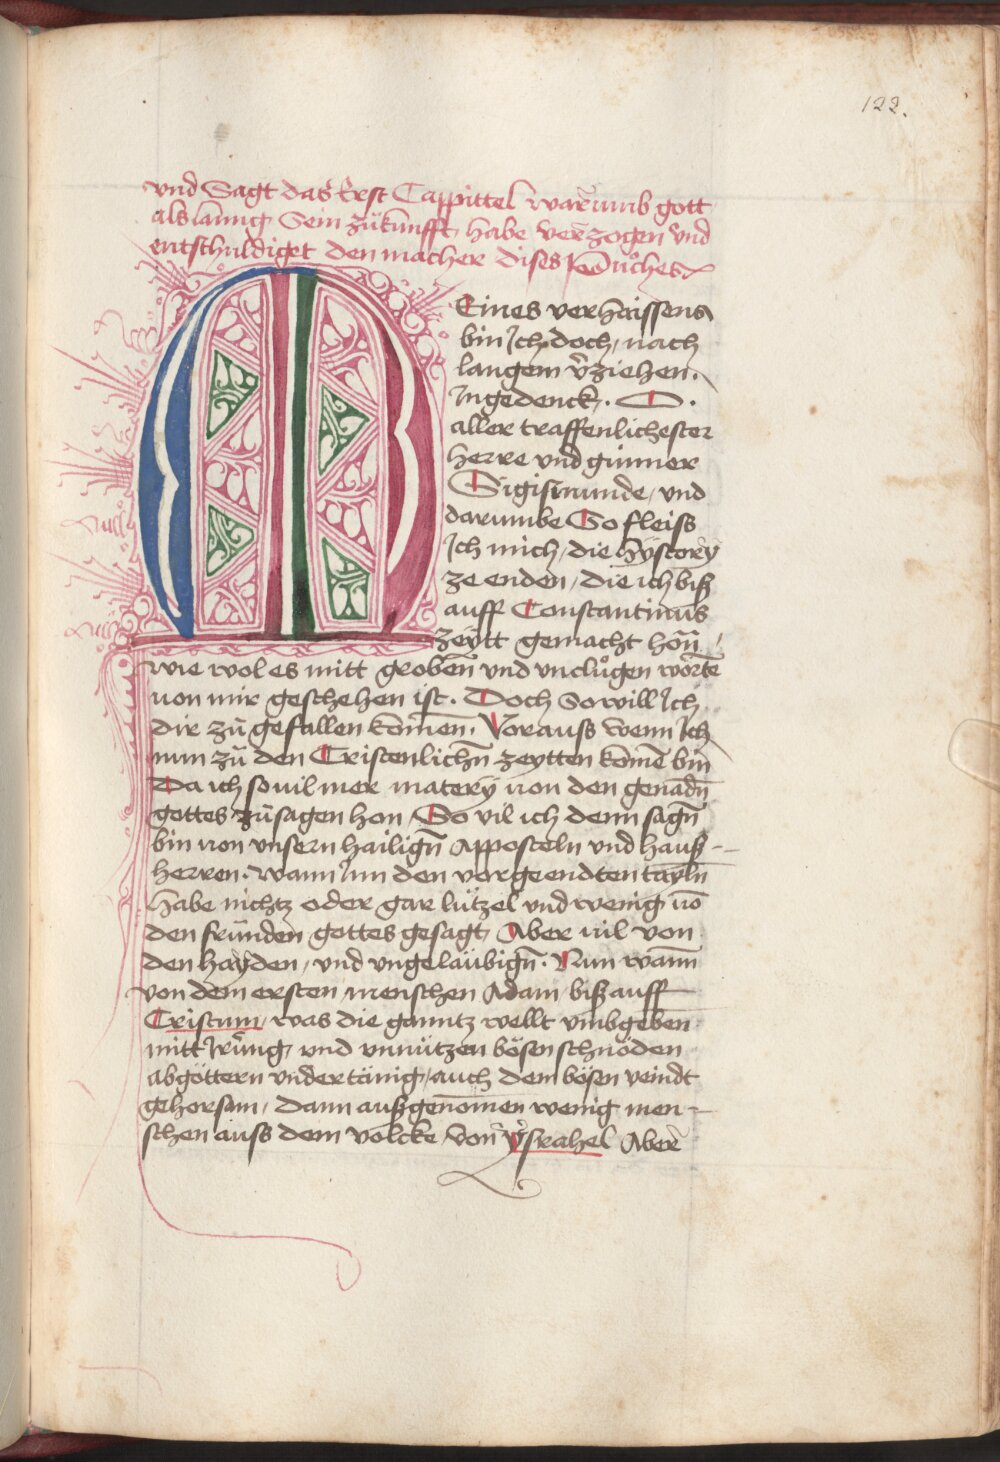 122.
vnd Sagt das Erst Cappittel warumb gott
als lanng Sein zůkunfft habe verzogen vnd
entschuldiget den macher dises Bůches
MEines verhaissens
bin Ich doch nach
langem v̄ziehen.
Ingedenck. O.
aller traffenlichester
herre vnd günner
Sigismunde, vnd
darumbe So fleiss
Ich mich, die hÿstorÿ
ze enden, die ich biß
auff Constantinus
zeytt gemacht hon̄
wie wol es mitt groben vnd vnclůgen worte͂
uon mir geschehen ist. Doch So will Ich
dir zů gefallen kome͂n. Vorauss wenn Ich
nun zů den Cristenlichn̄ zeytten kome͂ bin
Da ich souil mer matery uon den genadn̄
gottes zůsagen hon, So vil ich denn sagn̄
bin uon vnsern hailign̄ Apposteln vnd hauß-
herren. wann Inn den vorgeendten tayln̄
habe nichtz oder gar lützel vnd wenig uo͂
den fründen gottes gesagt, Aber uil von
den hayden, vnd vngeläubign̄. Nun wann
von dem ersten menschen Adam, biß auff
Cristum, was die ganntz wellt vmbgeben
mitt Irrung, vnd vnnützen bösen schnöden
abgöttern vndertänig, auch dem bösen veindt
gehorsam, Dann außgenome͂n wenig men-
schen auss dem volcke von ÿsrahel Aber